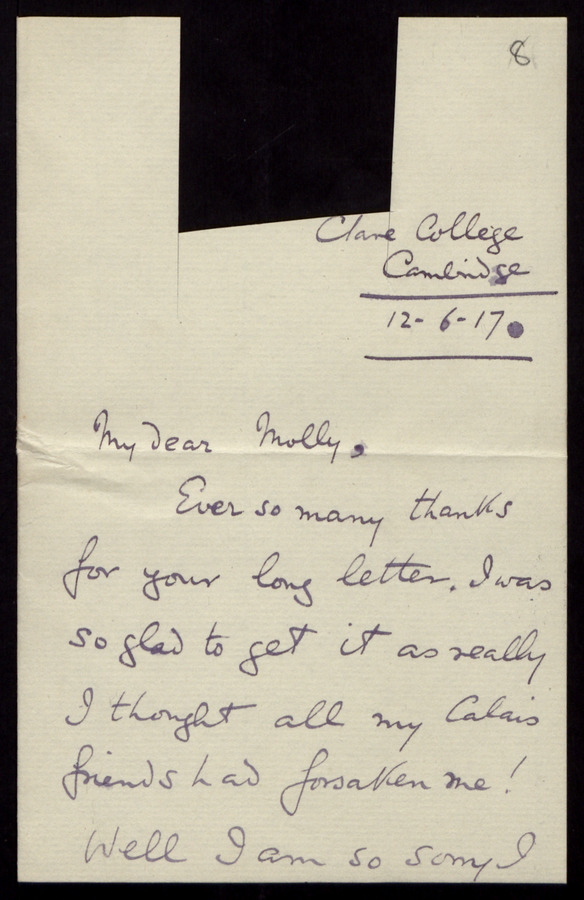 8
Clare College
Cambridge
12-6-17.
My dear Molly,
Ever so many thanks
for your long letter. I was
so glad to get it as really
I thought all my Calais
friends had forsaken me!
Well I am so sorry I